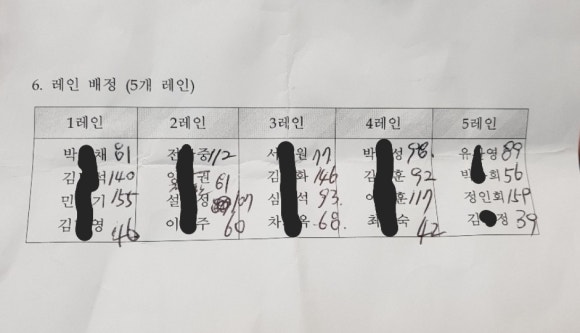 6. 레인 배정 (5개 레인)
1레인 2레인 3레인 4레인 5레인
박 채 81 전 중 112 서 원 77 박 성 98. 유 영 89
김 석 140 권 61 김 화 146 김 훈 92 박 희 56
민 기 155 설 정 107 심 석 93. 이 훈 117 정인회 159
김 영 46 이 주 60 차 옥 68. 최 숙 42 김 정 39